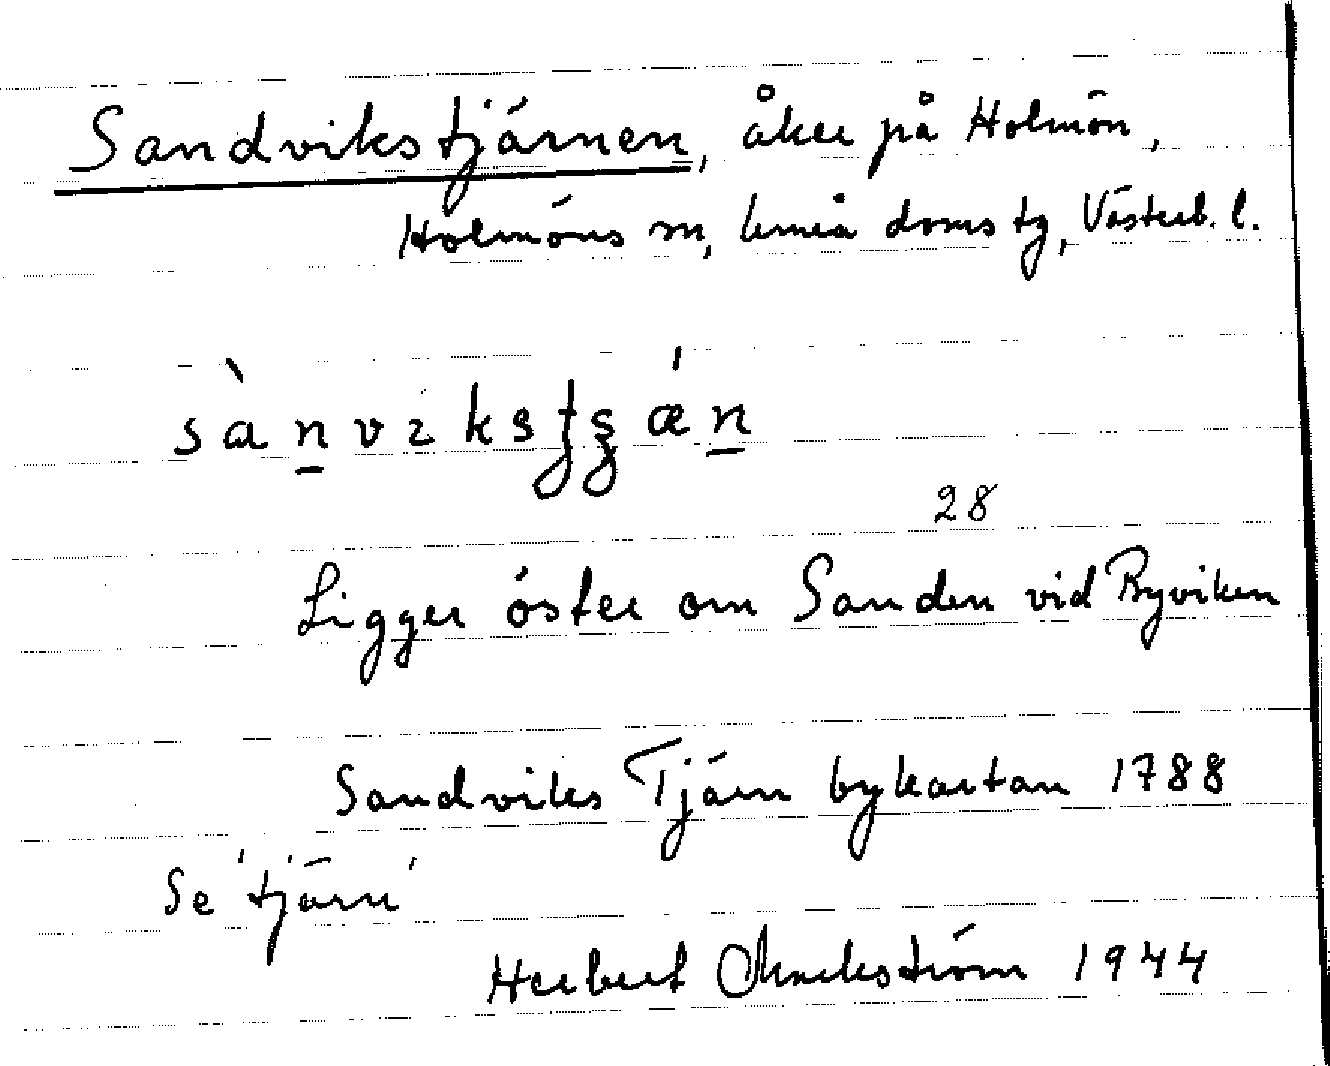 Sandvikstjärnen, åker på Holmön,
Holmöns sn, Umeå doms tg, Västerb. l.
sànvɩksʈʂǽn
28
Ligger öster om Sanden vid Byviken
Sandviks Tjärn bykartan 1788
Se 'tjärn'
Herbert 1944